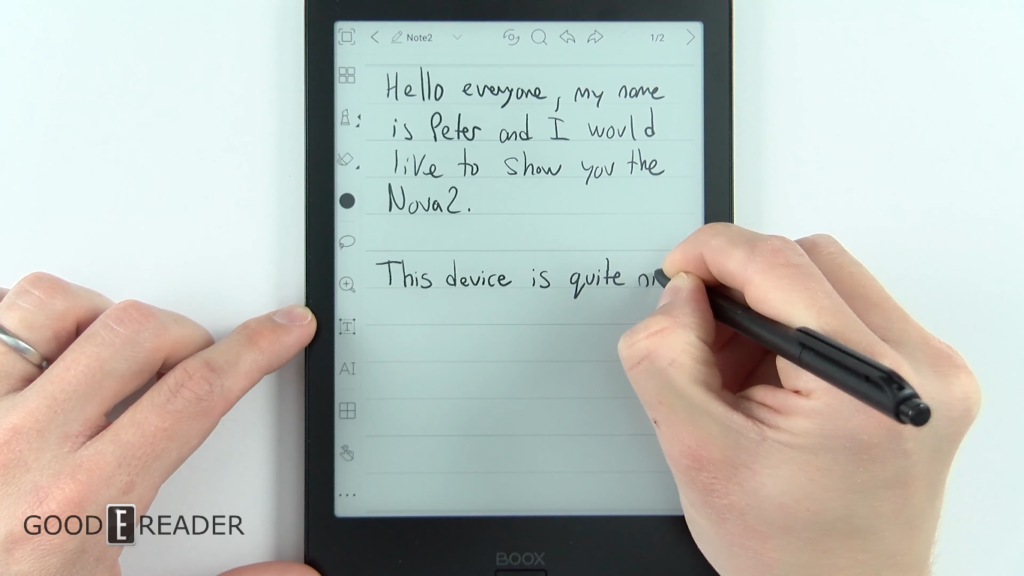 Note2
1/2
Hello everyone, my name
is Peter and I would
like to show you the
Nova2.
This device is quite
AI
T
GOOD E READER
BOOX